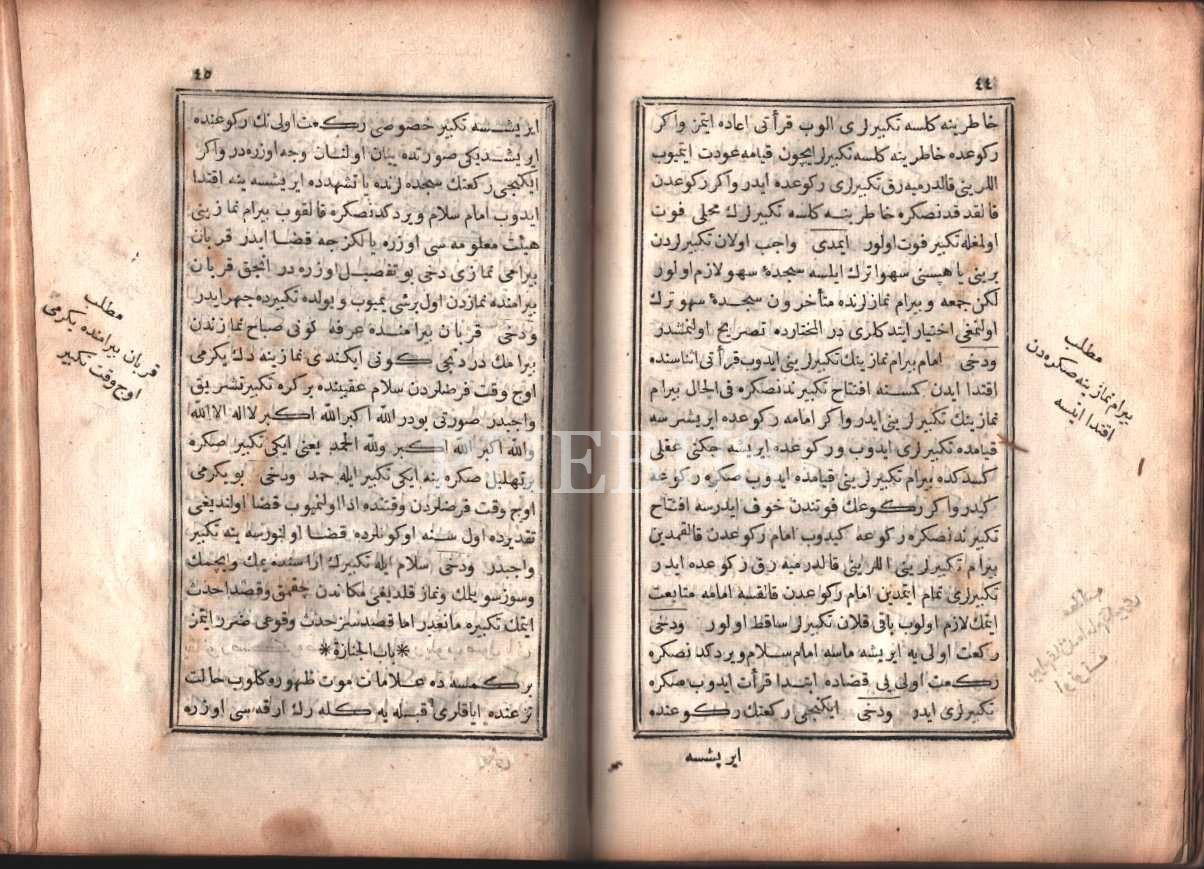 ٤٤
خاطرینه کلسه تکبیرلری الوب قرأتی اعاده ایتمز واکر
رکوعده خاطرینه کلسه تکبیرلر ایچون قیامه عودت ایتمیوب
اللرینی قالدرمیه رق تکبیرلری رکوعده ایدر واکر رکوعدن
قالقدقدنصکره خاطرینه کلسه تکبیرلرك محلی فوت
اولمغله تکبیر فوت اولور ایمدی واجب اولان تکبیرلردن
برینی یا هپسنی سهوا ترك ایلسه سجدۀ سهو لازم اولور
لکن جمعه و بیرام نمازلرنده متأخرون سجدۀ سهو ترك
اولنمغی اختیار ایتدکلری در المختارده تصریح اولنمشدر
ودخی امام بیرام نمازینك تکبیرلرینی ایدوب قرأتی اثناسنده
اقتدا ایدن کمسنه افتتاح تکبیرندنصکره فی الحال بیرام
نمازینك تکبیرلرینی ایدر واکر امامه رکوعده ایریشرسه
قیامده تکبیرلری ایدوب ورکوعده ایریشه جکنی عقلی
کسدکده بیرام تکبیرلرینی قیامده ایدوب صکره رکوعه
کیدر واکر رکوعك فوتندن خوف ایدرسه افتتاح
تکبیرندنصکره رکوعه کیدوب امام رکوعدن قالقمدین
بیرام تکبیرلرینی اللرینی قالدرمیه رق رکوعده ایدر
تکبیرلری تمام ایتمدین امام رکوعدن قالقسه امامه متابعت
ایتمك لازم اولوب باقی قلان تکبیرلر ساقط اولور ودخی
رکعت اولی یه ایریشه ماسه امام سلام ویردکدنصکره
رکعت اولی یی قضاده ابتدا قرأت ایدوب صکره
تکبیرلری ایدر ودخی ایکنجی رکعتك رکوعنده
ایریشسه
مطلب
بیرام نمازینه صکره دن
اقتدا ایلسه
٤٥
ایریشسه تکبیر خصوصی رکعت اولی نك رکوعنده
ایریشدیکی صورتده بیان اولنان وجه اوزره در واکر
ایکنجی رکعتك سجده لرنده یا تشهدده ایریشسه ینه اقتدا
ایدوب امام سلام ویردکدنصکره قالقوب بیرام نمازینی
هیئت معلومه سی اوزره یالکزجه قضا ایدر قربان
بیرامی نمازی دخی بو تفصیل اوزره در انجق قربان
بیرامنده نمازدن اول برشی یمیوب ویولده تکبیرده جهر ایدر
ودخی قربان بیرامنده عرفه کونی صباح نمازندن
بیرامك دردنجی کونی ایکندی نمازینه دك یکرمی
اوج وقت فرضلردن سلام عقبنده برکره تکبیر تشریق
واجبدر صورتی بودر الله اکبر الله اکبر لااله الاالله
والله اکبر الله اکبر ولله الحمد یعنی ایکی تکبیر صکره
بر تهلیل صکره ینه ایکی تکبیر ایله حمد ودخی بویکرمی
اوج وقت فرضلردن وقتنده ادا اولنمیوب قضا اولندیغی
تقدیرده اول سنه اوکونلرده قضا اولنورسه ینه تکبیر
واجبدر ودخی سلام ایله تکبیرك اراسنده یمك وایچمك
وسوز سویلمك ونماز قلدیغی مکاندن چقمق وقصدا حدث
ایتمك تکبیره مانعدر اما قصدسز حدث وقوعی ضرر ایتمز
*باب الجنازة*
بر کمسه ده علامات موت ظهوره کلوب حالت
نزعنده ایاقلری قبله یه کله رك ارقه سی اوزره
مطلب
قربان بیرامنده یکرمی
اوج وقت تکبیر
PHEBUS